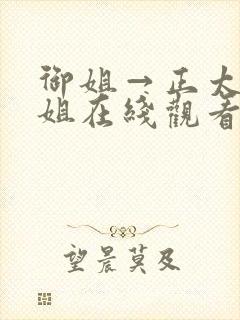 御姐→正太
姐在綫觀看
望晨莫及